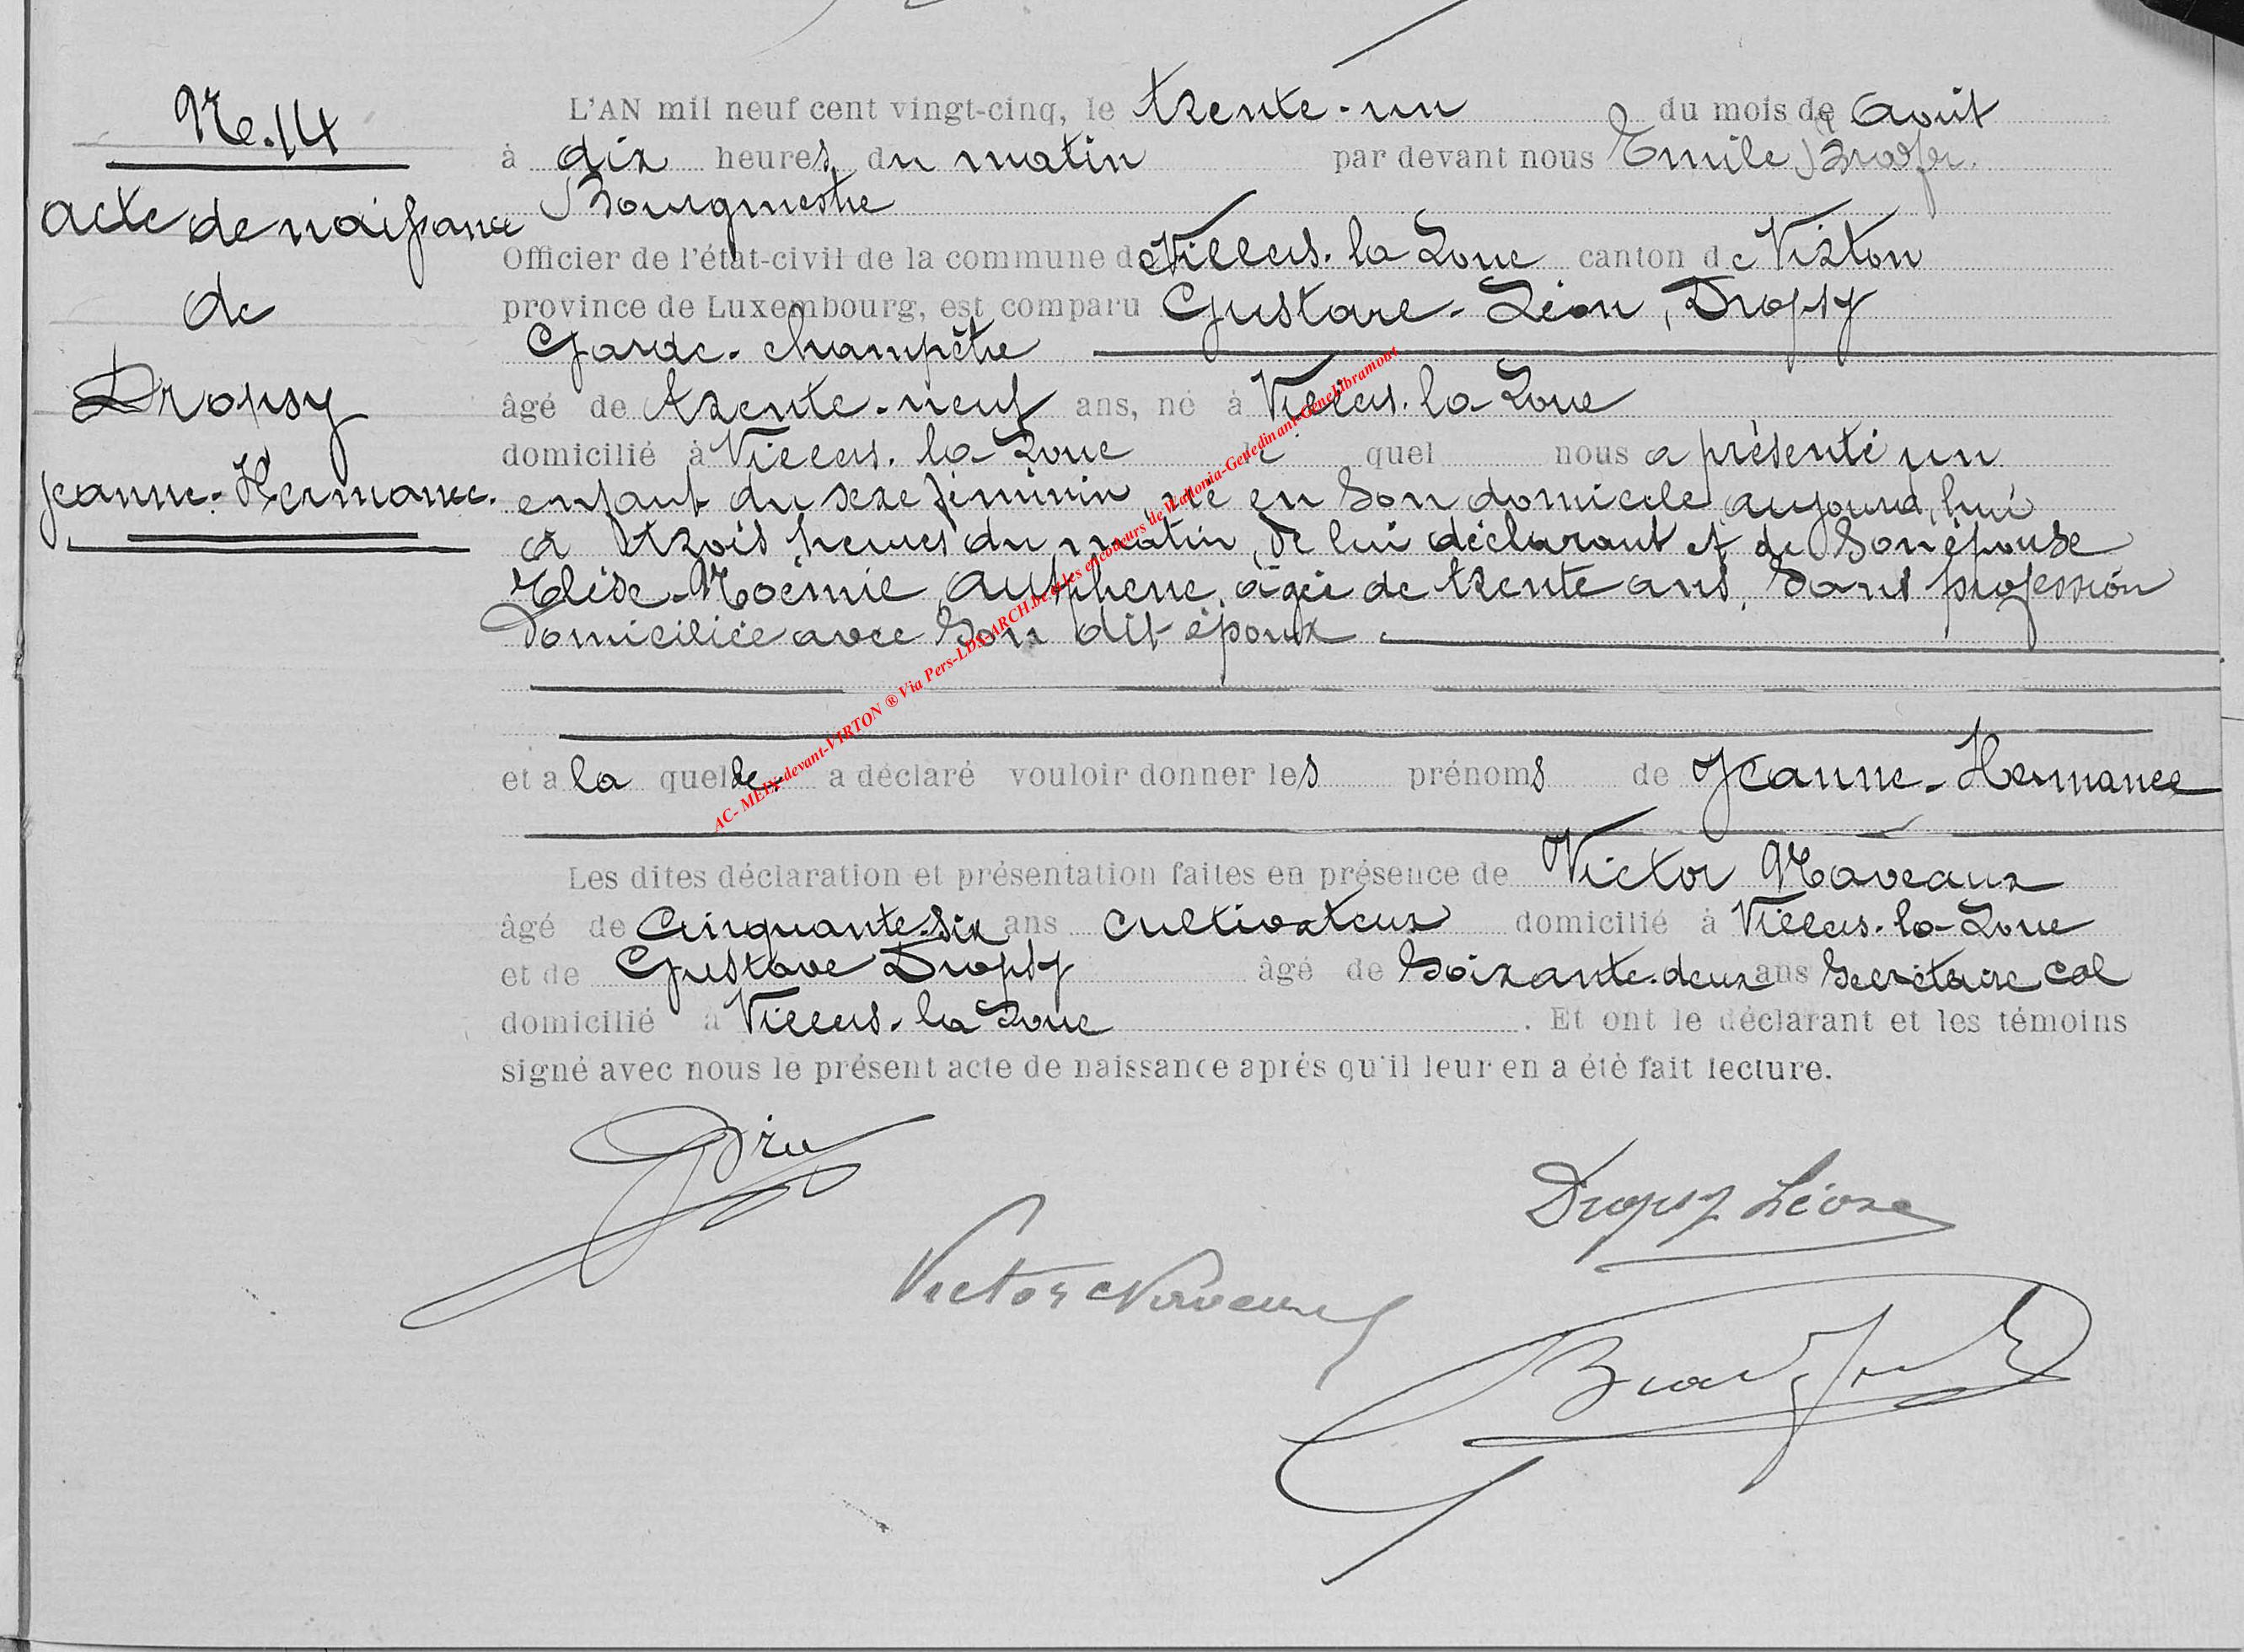 No. 14
acte de naissance
de
Dropsy
Jeanne-Hermance.
L'AN mil neuf cent vingt-cinq, le trente-un du mois de Août
à dix heures du matin par devant nous Emile
Bourgmestre
Officier de l'état-civil de la commune de Villers-la-Loue canton de Virton
province de Luxembourg, est comparu Gustave-Léon, Dropsy
Garde-champêtre
âgé de trente-neuf ans, né à Villers-la-Loue
domicilié à Villers-la-Loue le quel nous a présenté un
enfant du sexe féminin, né en son domicile aujourd'hui
à trois heures du matin, de lui déclarant et de son épouse
Elise-Noémie, âgée de trente ans, sans profession
domiciliée avec son dit époux.
et a la quelle a déclaré vouloir donner les prénoms de Jeanne-Hermance
Les dites déclaration et présentation faites en présence de Victor Naveaux
âgé de Cinquante-six ans cultivateur domicilié à Villers-la-Loue
et de Gustave Dropsy âgé de Soixante-deux ans Secrétaire cal
domicilié à Villers-la-Loue. Et ont le déclarant et les témoins
signé avec nous le présent acte de naissance après qu'il leur en a été fait lecture.
Dropsy Léon
Victor Naveaux
AC- MEIX-devant-VIRTON ® Via Pers-LDS-ARCH.be & les encodeurs de Wallonia-Genedinant-GeneLibramont